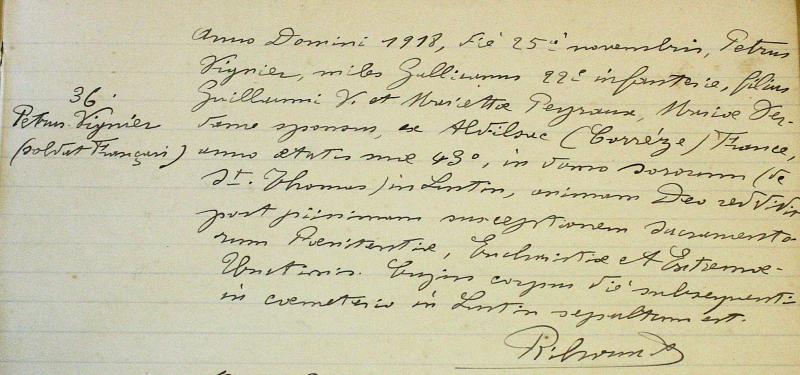 Anno Domini 1918, die 25ª novembris, Petrus
Vignier, miles Gallicanus 22e infanterie, filius
Guillaumi V. et Mariettæ Peyraux, Mariæ Der-
36.
Petrus Vignier
(soldat Français)
dame sponsus, ex (Corrèze) France,
anno ætatis suæ 43º, in domo sororum (de
St. Thomas) in Lustin, animam Deo reddidit
post piissimam susceptionem sacramento
rum Pœnitentiæ, Eucharistiæ et Extremæ-
Unctionis. Cujus corpus die subsequenti
in cœmeterio in Lustin sepultum est.